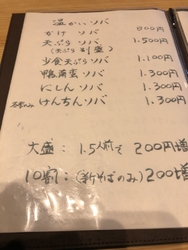 温かいソバ
かけ ソバ 800円
天ぷら ソバ 1.500円
(天ぷら別盛)
少食天ぷらソバ 1.100円
鴨南蛮ソバ 1.300円
にしんソバ 1.300円
けんちんソバ 1.300円
大盛：1.5人前で200円増
10割：(新そばのみ)200増